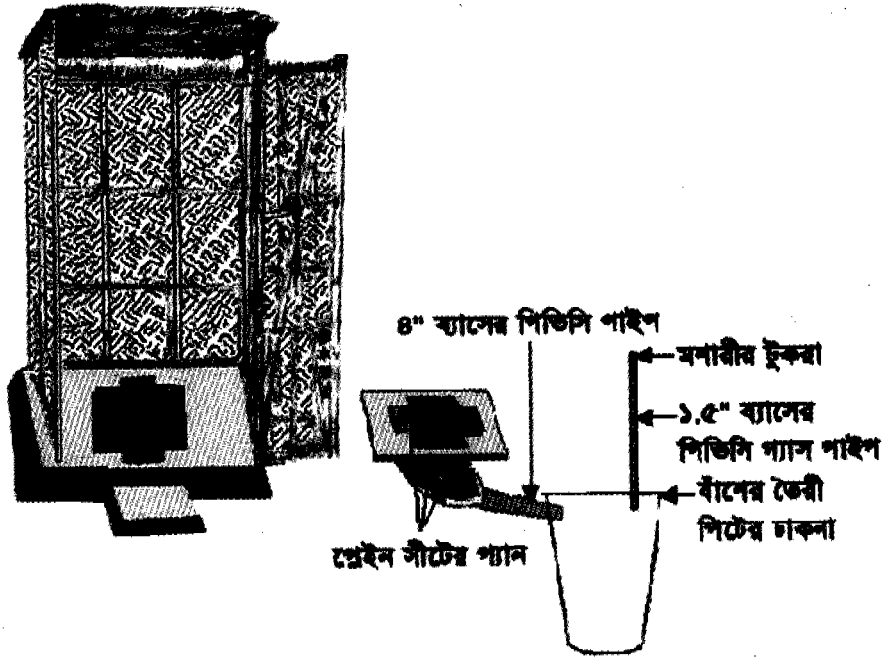 ৪" ব্যাসের পিভিসি পাইপ
মশারীর টুকরা
১.৫" ব্যাসের
পিভিসি গ্যাস পাইপ
বাঁশের তৈরী
পিটের ঢাকনা
প্লেইন সীটের প্যান